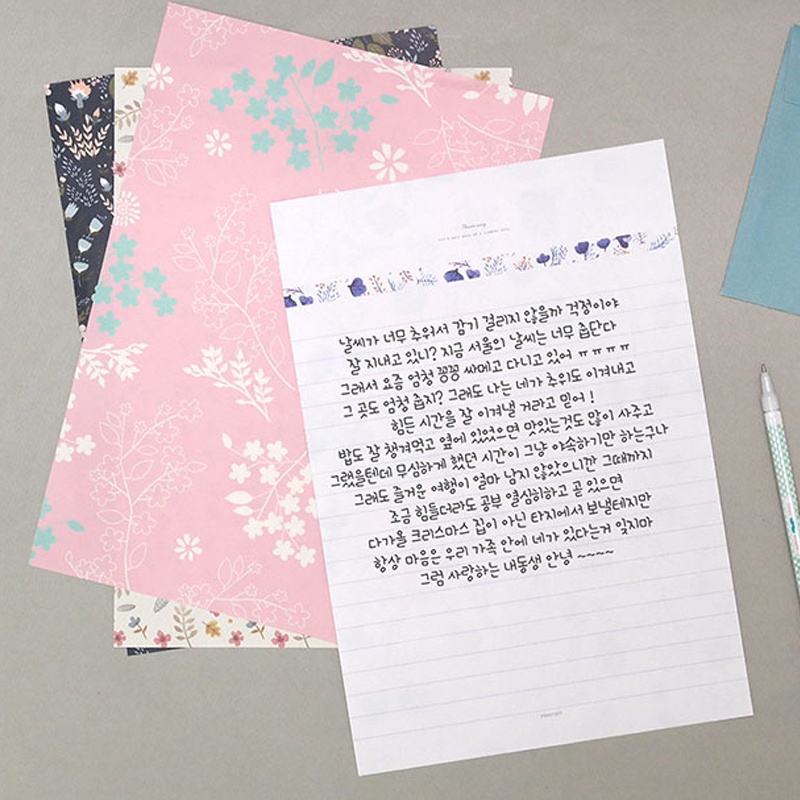 날씨가 너무 추워서 감기 걸리지 않을까 걱정이야
잘 지내고 있니? 지금 서울의 날씨는 너무 춥단다
그래서 요즘 엄청 꽁꽁 싸메고 다니고 있어 ㅠㅠㅠㅠ
그 곳도 엄청 춥지? 그래도 나는 네가 추위도 이겨내고
힘든 시간을 잘 이겨낼 거라고 믿어!
밥도 잘 챙겨먹고 옆에 있었으면 맛있는것도 많이 사주고
그랬을텐데 무심하게 했던 시간이 그냥 야속하기만 하는구나
그래도 즐거운 여행이 얼마 남지 않았으니깐 그때까지
조금 힘들더라도 공부 열심히하고 곧 있으면
다가올 크리스마스 집이 아닌 타지에서 보낼테지만
항상 마음은 우리 가족 안에 네가 있다는거 잊지마
그럼 사랑하는 내동생 안녕 ~~~~